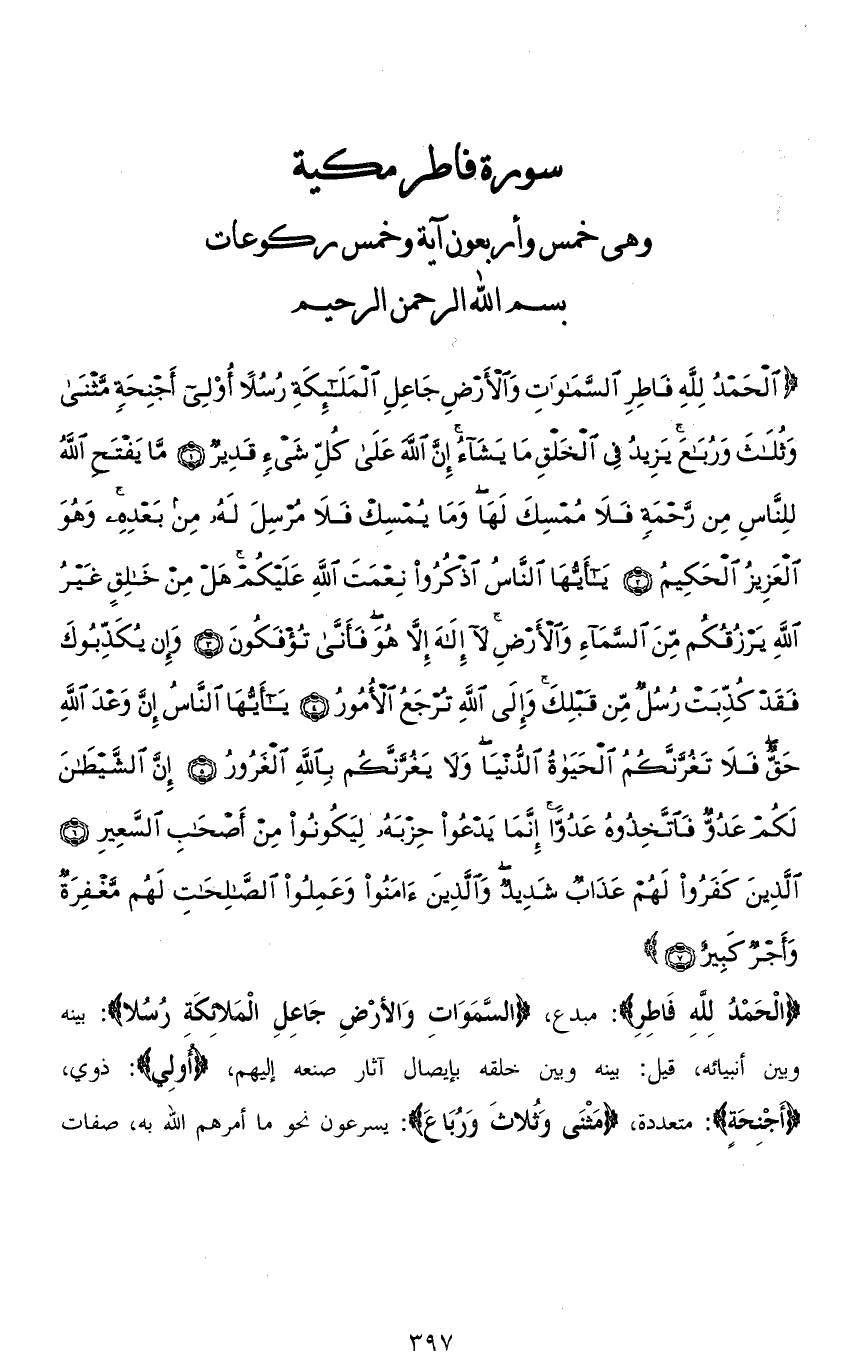 سورة فاطر مكية
وهى خمس وأربعون آية وخمس ركوعات
بسم الله الرحمن الرحيم
﴿ٱلْحَمْدُ لِلَّهِ فَاطِرِ ٱلسَّمَٰوَٰتِ وَٱلْأَرْضِ جَاعِلِ ٱلْمَلَٰٓئِكَةِ رُسُلًا أُوْلِىٓ أَجْنِحَةٍ مَّثْنَىٰ
وَثُلَٰثَ وَرُبَٰعَ ۚ يَزِيدُ فِى ٱلْخَلْقِ مَا يَشَآءُ ۚ إِنَّ ٱللَّهَ عَلَىٰ كُلِّ شَىْءٍ قَدِيرٌ ۝١ مَّا يَفْتَحِ ٱللَّهُ
لِلنَّاسِ مِن رَّحْمَةٍ فَلَا مُمْسِكَ لَهَا ۖ وَمَا يُمْسِكْ فَلَا مُرْسِلَ لَهُۥ مِنۢ بَعْدِهِۦ ۚ وَهُوَ
ٱلْعَزِيزُ ٱلْحَكِيمُ ۝٢ يَٰٓأَيُّهَا ٱلنَّاسُ ٱذْكُرُوا۟ نِعْمَتَ ٱللَّهِ عَلَيْكُمْ ۚ هَلْ مِنْ خَٰلِقٍ غَيْرُ
ٱللَّهِ يَرْزُقُكُم مِّنَ ٱلسَّمَآءِ وَٱلْأَرْضِ ۚ لَآ إِلَٰهَ إِلَّا هُوَ ۖ فَأَنَّىٰ تُؤْفَكُونَ ۝٣ وَإِن يُكَذِّبُوكَ
فَقَدْ كُذِّبَتْ رُسُلٌ مِّن قَبْلِكَ ۚ وَإِلَى ٱللَّهِ تُرْجَعُ ٱلْأُمُورُ ۝٤ يَٰٓأَيُّهَا ٱلنَّاسُ إِنَّ وَعْدَ ٱللَّهِ
حَقٌّ ۖ فَلَا تَغُرَّنَّكُمُ ٱلْحَيَوٰةُ ٱلدُّنْيَا ۖ وَلَا يَغُرَّنَّكُم بِٱللَّهِ ٱلْغَرُورُ ۝٥ إِنَّ ٱلشَّيْطَٰنَ
لَكُمْ عَدُوٌّ فَٱتَّخِذُوهُ عَدُوًّا ۚ إِنَّمَا يَدْعُوا۟ حِزْبَهُۥ لِيَكُونُوا۟ مِنْ أَصْحَٰبِ ٱلسَّعِيرِ ۝٦
ٱلَّذِينَ كَفَرُوا۟ لَهُمْ عَذَابٌ شَدِيدٌ ۖ وَٱلَّذِينَ ءَامَنُوا۟ وَعَمِلُوا۟ ٱلصَّٰلِحَٰتِ لَهُم مَّغْفِرَةٌ
وَأَجْرٌ كَبِيرٌ ۝٧﴾
﴿الْحَمْدُ لِلَّهِ فَاطِرِ﴾: مبدع، ﴿السَّمَوَاتِ وَالأَرْضِ جَاعِلِ الْمَلائِكَةِ رُسُلا﴾: بينه
وبين أنبيائه، قيل: بينه وبين خلقه بإيصال آثار صنعه إليهم، ﴿أُولِي﴾: ذوي،
﴿أَجْنِحَةٍ﴾: متعددة، ﴿مَثْنَى وَثُلاثَ وَرُبَاعَ﴾: يسرعون نحو ما أمرهم الله به، صفات
٣٩٧